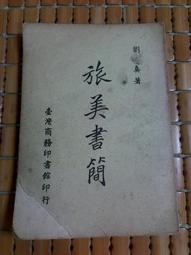 劉真著
旅美書簡
臺灣商務印書館印行